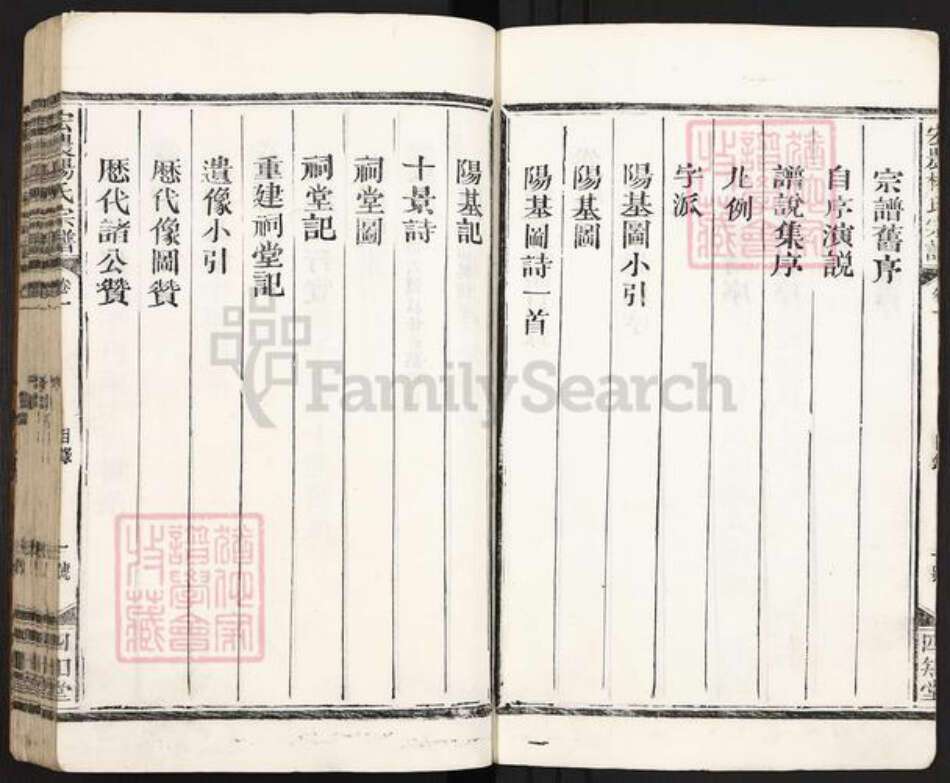 宗譜舊序
自序演説
譜說集序
凡例
字派
陽基圖小引
陽基圖
陽基圖詩一首
陽基記
十景詩
祠堂圖
祠堂記
重建祠堂記
遺像小引
歴代像圖贊
歴代諸公贊
楊氏宗譜
卷一
目錄
一號
四知堂
FamilySearch